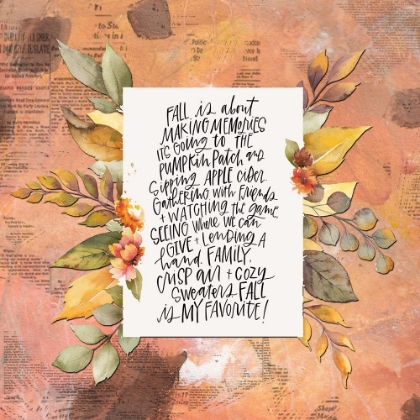 FALL is about
MAKING MEMORIES
ITS Going to THE
PUMPKIN PATCH and
Sipping APPLE CIDER
Gathering with friends
+ WATCHING the game
SEEING WHERE WE CAN
GIVE + Lending A
hand. FAMILY.
CRISP air + cozy
Sweaters FALL
is MY FAVORITE!